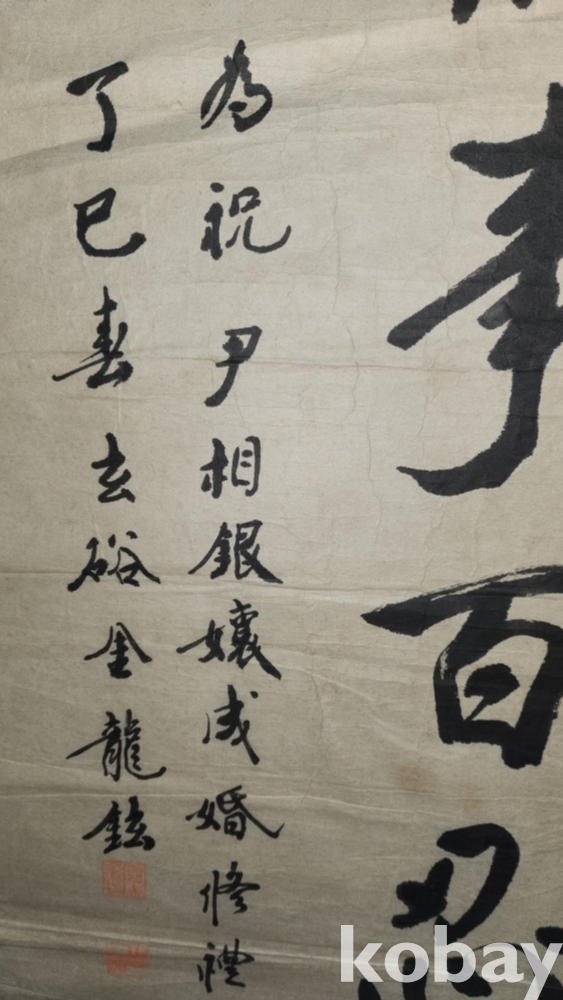 事百忍
為祝 尹相銀孃成婚修禮
丁巳春 玄硲金龍鉉
kobay